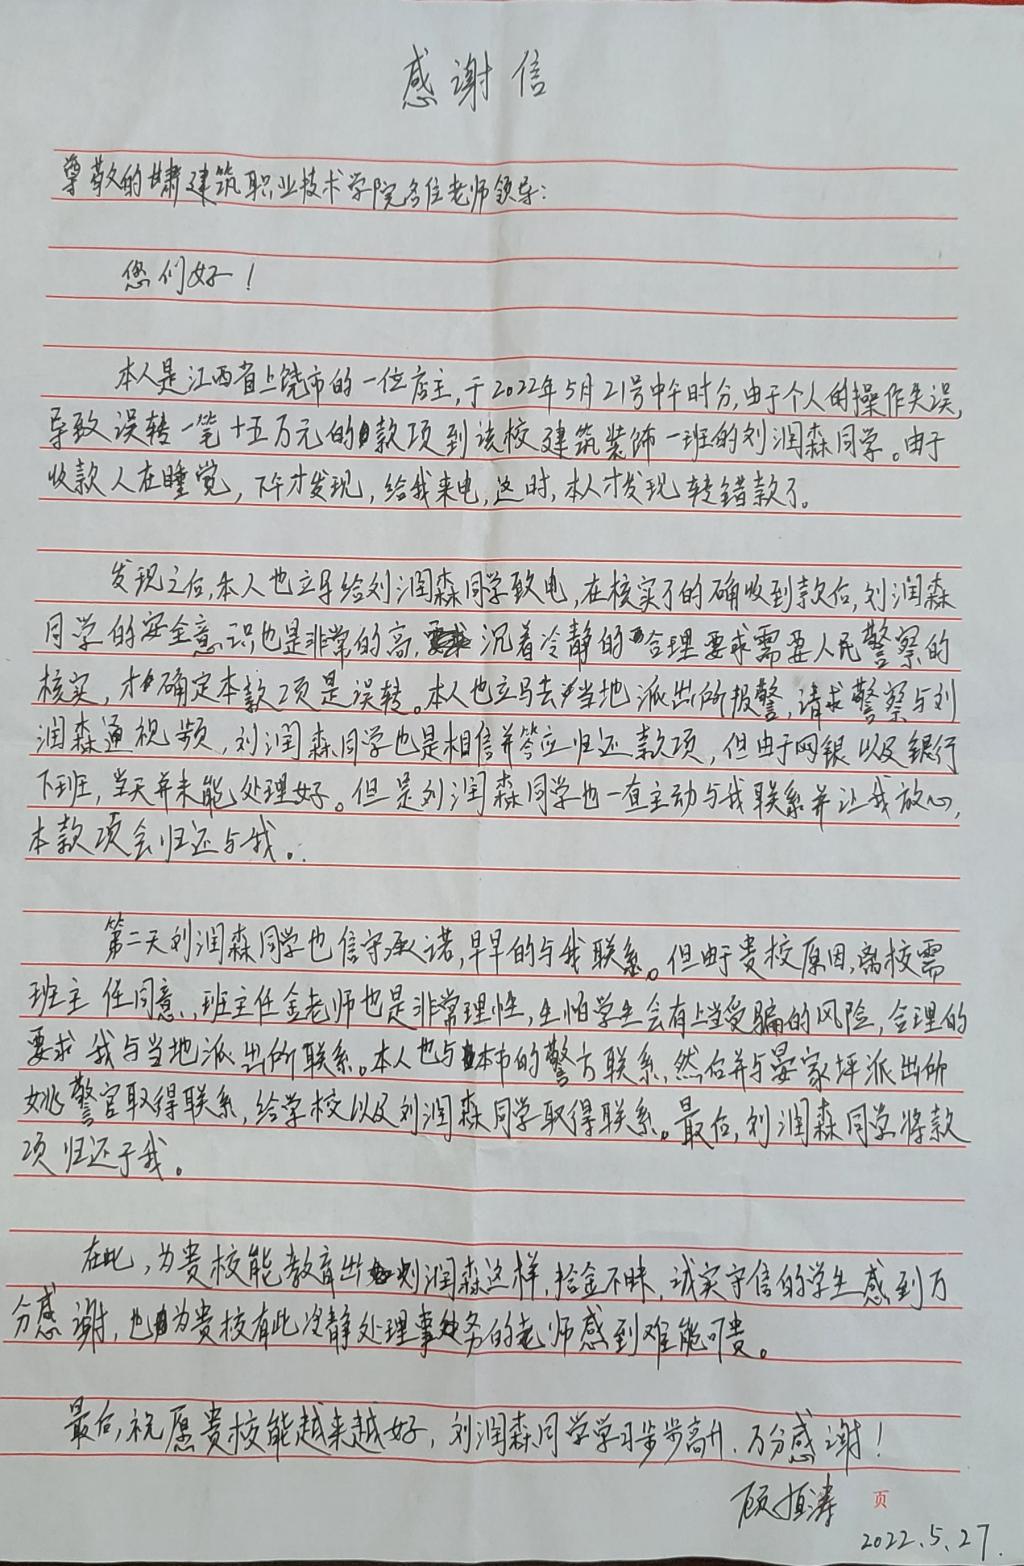 感谢信
尊敬的甘肃建筑职业技术学院各位老师领导：
您们好！
本人是江西省上饶市的一位店主，于2022年5月21号中午时分，由于个人的操作失误，
导致误转一笔十五万元的款项到该校建筑装饰一班的刘润森同学。由于
收款人在睡觉，下午才发现，给我来电，这时，本人才发现转错款了。
发现之后，本人也立马给刘润森同学致电，在核实了的确收到款后，刘润森
同学的安全意识也是非常的高，沉着冷静的合理要求需要人民警察的
核实，才确定本款项是误转。本人也立马去当地派出所报警，请求警察与刘
润森通视频，刘润森同学也是相信并答应归还款项，但由于网银以及银行
下班，当天并未能处理好。但是刘润森同学也一直主动与我联系并让我放心，
本款项会归还与我。
第二天刘润森同学也信守承诺，早早的与我联系。但由于贵校原因，离校需
班主任同意，班主任金老师也是非常理性，生怕学生会有上当受骗的风险，合理的
要求我与当地派出所联系。本人也与本市的警方联系，然后并与晏家坪派出所
姚警官取得联系，给学校以及刘润森同学取得联系。最后，刘润森同学将款
项归还于我。
在此，为贵校能教育出刘润森这样，拾金不昧，诚实守信的学生感到万
分感谢，也为贵校有此冷静处理事务的老师感到难能可贵。
最后，祝愿贵校能越来越好，刘润森同学学习步步高升，万分感谢！
顾恒涛
页
2022.5.27.